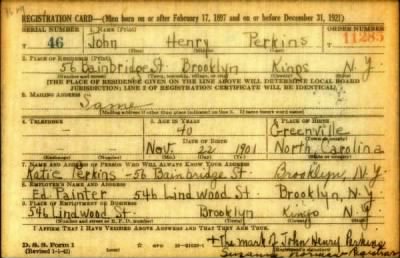 REGISTRATION CARD—(Men born on or after February 17, 1897 and on or before December 31, 1921)
SERIAL NUMBER 1. NAME (Print) ORDER NUMBER
46 John Henry Perkins 11285
(First) (Middle) (Last)
2. PLACE OF RESIDENCE (Print)
56 Bainbridge St Brooklyn Kings N.Y.
(Number and street) (Town, township, village, or city) (County) (State)
[THE PLACE OF RESIDENCE GIVEN ON THE LINE ABOVE WILL DETERMINE LOCAL BOARD
JURISDICTION; LINE 2 OF REGISTRATION CERTIFICATE WILL BE IDENTICAL]
3. MAILING ADDRESS
Same
[Mailing address if other than place indicated on line 2. If same insert word same]
4. TELEPHONE 5. AGE IN YEARS 6. PLACE OF BIRTH
— 40 Greenville
DATE OF BIRTH
Nov. 22 1901 North Carolina
(Exchange) (Number) (Mo.) (Day) (Yr.) (State or country)
7. NAME AND ADDRESS OF PERSON WHO WILL ALWAYS KNOW YOUR ADDRESS
Katie Perkins - 56 Bainbridge St. Brooklyn, N.Y.
8. EMPLOYER'S NAME AND ADDRESS
Ed. Painter 546 Lindwood St. Brooklyn, N.Y.
9. PLACE OF EMPLOYMENT OR BUSINESS
546 Lindwood St. Brooklyn Kings N.Y.
(Number and street or R. F. D. number) (Town) (County) (State)
I AFFIRM THAT I HAVE VERIFIED ABOVE ANSWERS AND THAT THEY ARE TRUE.
D. S. S. Form 1 + The mark of John Henry Perkins
(Revised 1-1-42) GPO Registrar